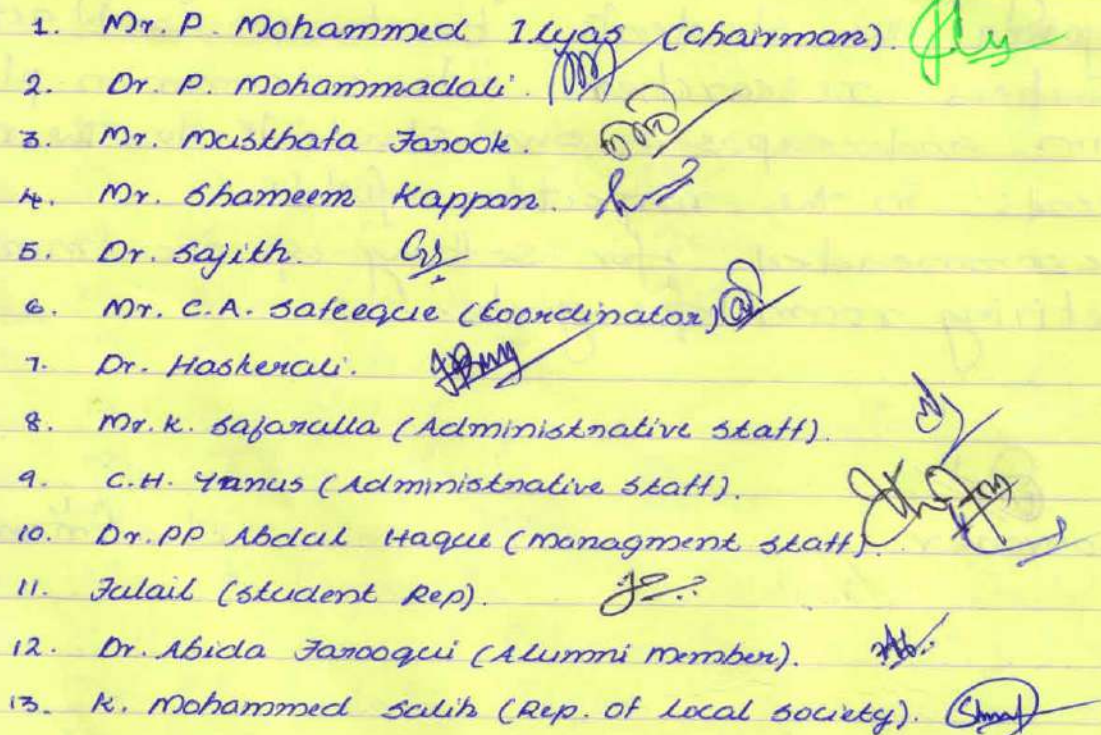 1. Mr. P. Mohammed Ilyas (Chairman).
2. Dr. P. Mohammadali.
3. Mr. Musthafa Farook.
4. Mr. Shameem Kappan.
5. Dr. Sajith.
6. Mr. C.A. Safeeque (Coordinator)
7. Dr. Haskerali.
8. Mr. K. Safarulla (Administrative Staff).
9. C.H. Yunus (Administrative Staff).
10. Dr. PP Abdul Haque (Managment Staff).
11. Fulail (Student Rep).
12. Dr. Abida Farooqui (Alumni member).
13. K. Mohammed Salih (Rep. of Local Society).